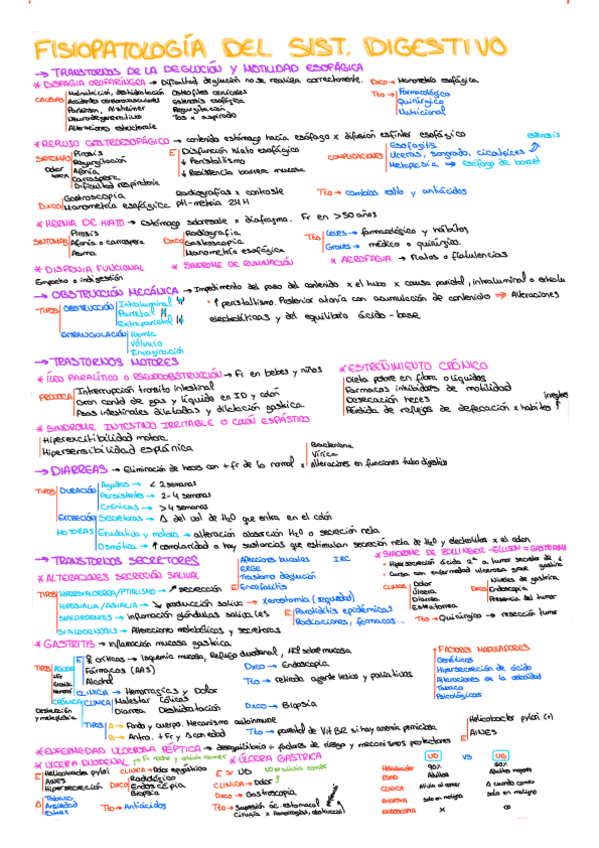 FISIOPATOLOGÍA DEL SIST. DIGESTIVO
→ TRANSTORNOS DE LA DEGLUCIÓN Y MOTILIDAD ESOFÁGICA
* DISFAGIA OROFARÍNGEA → Dificultad deglución no se realiza correctamente. Dxco → Manometría esofágica
CAUSAS
Malnutrición, deshidratación
Accidentes cerebrovasculares
Parkinson, Alzheimer
Neurodegenerativo
Alteraciones estructurale
Osteofitos cervicales
estenosis esofágica
Regurgitación
Tos x aspirado
Tto →
Farmacológico
Quirúrgico
Nutricional
* REFLUJO GASTROESOFÁGICO → contenido estómago hacia esófago x difusión esfínter esofágico
SINTOMAS
Pirosis
Regurgitación
Afonía
Carraspera
Dificultad respiratoria
Dolor torax
E
Disfunción hiato esofágico
↓ Peristaltismo
↓ Resistencia barrera mucosa
COMPLICACIONES
Esofagitis
Úlceras, sangrado, cicatrices ↗ estenosis
Metaplasia → esófago de barret
Dxco
Gastroscopia
Manometría esofágica
Radiografías x contraste
pH-metria 24H
Tto → cambios estilo y antiácidos
* HERNIA DE HIATO → Estómago sobresale x diafragma. Fr en >50 años
SINTOMAS
Pirosis
Afonía o carraspera
Asma
Dxco
Radiografía
Gastroscopia
Manometría esofágica
Tto
Leves → farmacológico y hábitos
Graves → médico o quirúrgico
* DISPEPSIA FUNCIONAL
Empacho o indigestión
* SINDROME DE RUMINACIÓN
* AEROFAGIA → Flatos o flatulencias
→ OBSTRUCCIÓN MECÁNICA → Impedimento del paso del contenido x el tubo x causa parietal, intraluminal o extralu
TIPOS
OBSTRUCCIÓN
Intraluminal
Parietal
Extraparietal
ESTRANGULACIÓN
Hernia
Vólvulo
Invaginación
· ↑ peristaltismo. Posterior atonía con acumulación de contenido ⇒ Alteraciones
electrolíticas y del equilibrio ácido-base
→ TRASTORNOS MOTORES
* ÍLEO PARALÍTICO O PSEUDOOBSTRUCCIÓN → Fr en bebes y niños
PRODUCE
Interrrupción transito intestinal
Gran cantd de gas y líquido en ID y colón
Asas intestinales dilatadas y dilatación gastrica
* ESTREÑIMIENTO CRÓNICO
Dieta pobre en fibra o líquidos
Farmacos inhibidors de motilidad
Desecación heces
Pérdida de reflejos de defecación x habitos
* SINDROME INTESTINO IRRITABLE O COLÓN ESPÁSTICO
Hiperexcitibilidad motora
Hipersensibilidad esplánica
→ DIARREAS → Eliminación de heces con + fr de lo normal x
Bacteriana
Vírica
Alteraciones en funciones tubo digestivo
TIPOS
DURACIÓN
Agudas → < 2 semanas
Persistentes → 2-4 semanas
Crónicas → > 4 semanas
EXCRECIÓN
Secretoras → Δ del vol de H₂O que entra en el colón
MOTORAS
Exudativa y motora → alteración absorción H₂O o secreción neta
Osmótica → ↑ osmolaridad o hay sustancias que estimulan secreción neta de H₂O y electrolitos x el colon
→ TRANSTORNOS SECRETORES
* ALTERACIONES SECRECIÓN SALIVAL
E
Afecciones bucales
ERGE
Trastorno deglución
Encefalitis
IRC
TIPOS
HIPERSIALORREA/PTIALISMO → ↗ secreción
HIPOSIALIA/ASIALIA → ↘ producción saliva → Xerostomía (sequedad)
SIALOADENITIS → inflamación glándulas salivales
SIALOADENOSIS → Alteraciones metabólicas y secretoras
E
Parotiditis epidémicas
Radiaciones, farmacos...
* SINDROME DE ZOLLINGER-ELLISON = GASTRINOMA
· Hipersecreción ácida 2ª a tumor secretor de
· Cursa con enfermedad ulcerosa grave gastrina
CLINICA
Dolor
Úlcera
Diarrea
Esteatorrea
Dxco
Niveles de gastrina
Endoscopia
Presencia del tumor
Tto → Quirúrgico → resección tumor
* GASTRITIS → inflamación mucosa gastrica
TIPOS
AGUDA
E
Q críticas → Isquemia mucosa, Reflujo duodenal, HCl sobre mucosa
Fármacos (AAS)
Alcohol
CLINICA → Hemorragias y Dolor
Dxco → Endoscopia
Tto → retirada agente lesivo y paliativas
CRÓNICA
Destrucción y metaplasia
CLINICA
Malestar
Diarrea
Cólicas
Deshidratación
Dxco → Biopsia
TIPOS
A → Fondo y cuerpo. Mecanismo autoinmune
B → Antro. + Fr y Δ con edad
Tto → parental de Vit B12 si hay anemia perniciosa
FACTORES MODULADORES
Genéticos
Hipersecreción de ácido
Alteraciones de la motilidad
Tabaco
Psicológicos
* ENFERMEDAD ULCEROSA PÉPTICA → desequilibrio ≠ factores de riesgo y mecanismos protectores
E
Helicobacter pylori (+)
AINES
* ÚLCERA DUODENAL → Fr noche y alivia comer
E
Helicobacter pylori
AINES
Hipersecreción
Δ
Tabaco
Ansiedad
Estres
CLINICA → Dolor epigástrico
Dxco
Radiológico
Endoscópia
Biopsia
Tto → Antiácidos
* ÚLCERA GASTRICA
E ≃ UD
No se alivia comer
CLINICA → Dolor
Dxco → Gastroscopia
Tto → Supresión ác. estomacal
Cirugía x Hemorragia, obstrucción
UD VS UG
Helicobacter 90% 60%
EDAD Adultos Adultos mayores
CLINICA Alivia al comer Δ cuando comes